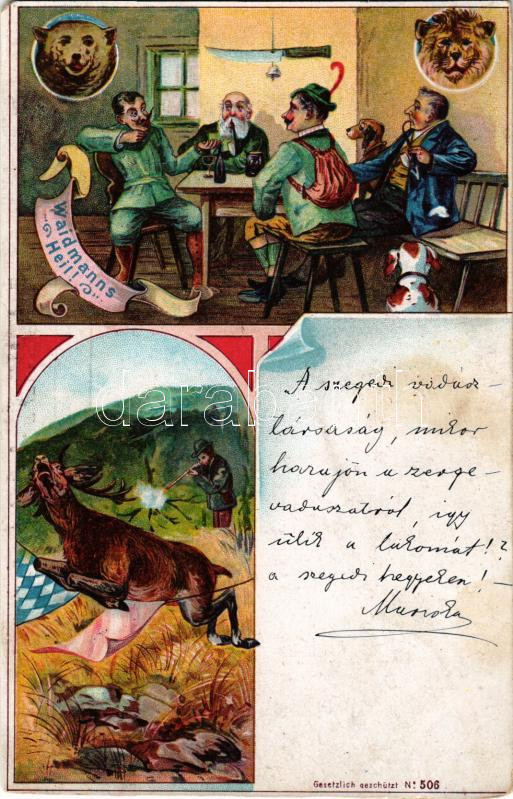 Waidmanns
Heil!
A szegedi vadász-
társaság, mikor
hazajön a zerge-
vadászatról, így
ülik a lakomát!?
a szegedi hegyeken! -
darabanth
Gesetzlich geschützt Nº 506